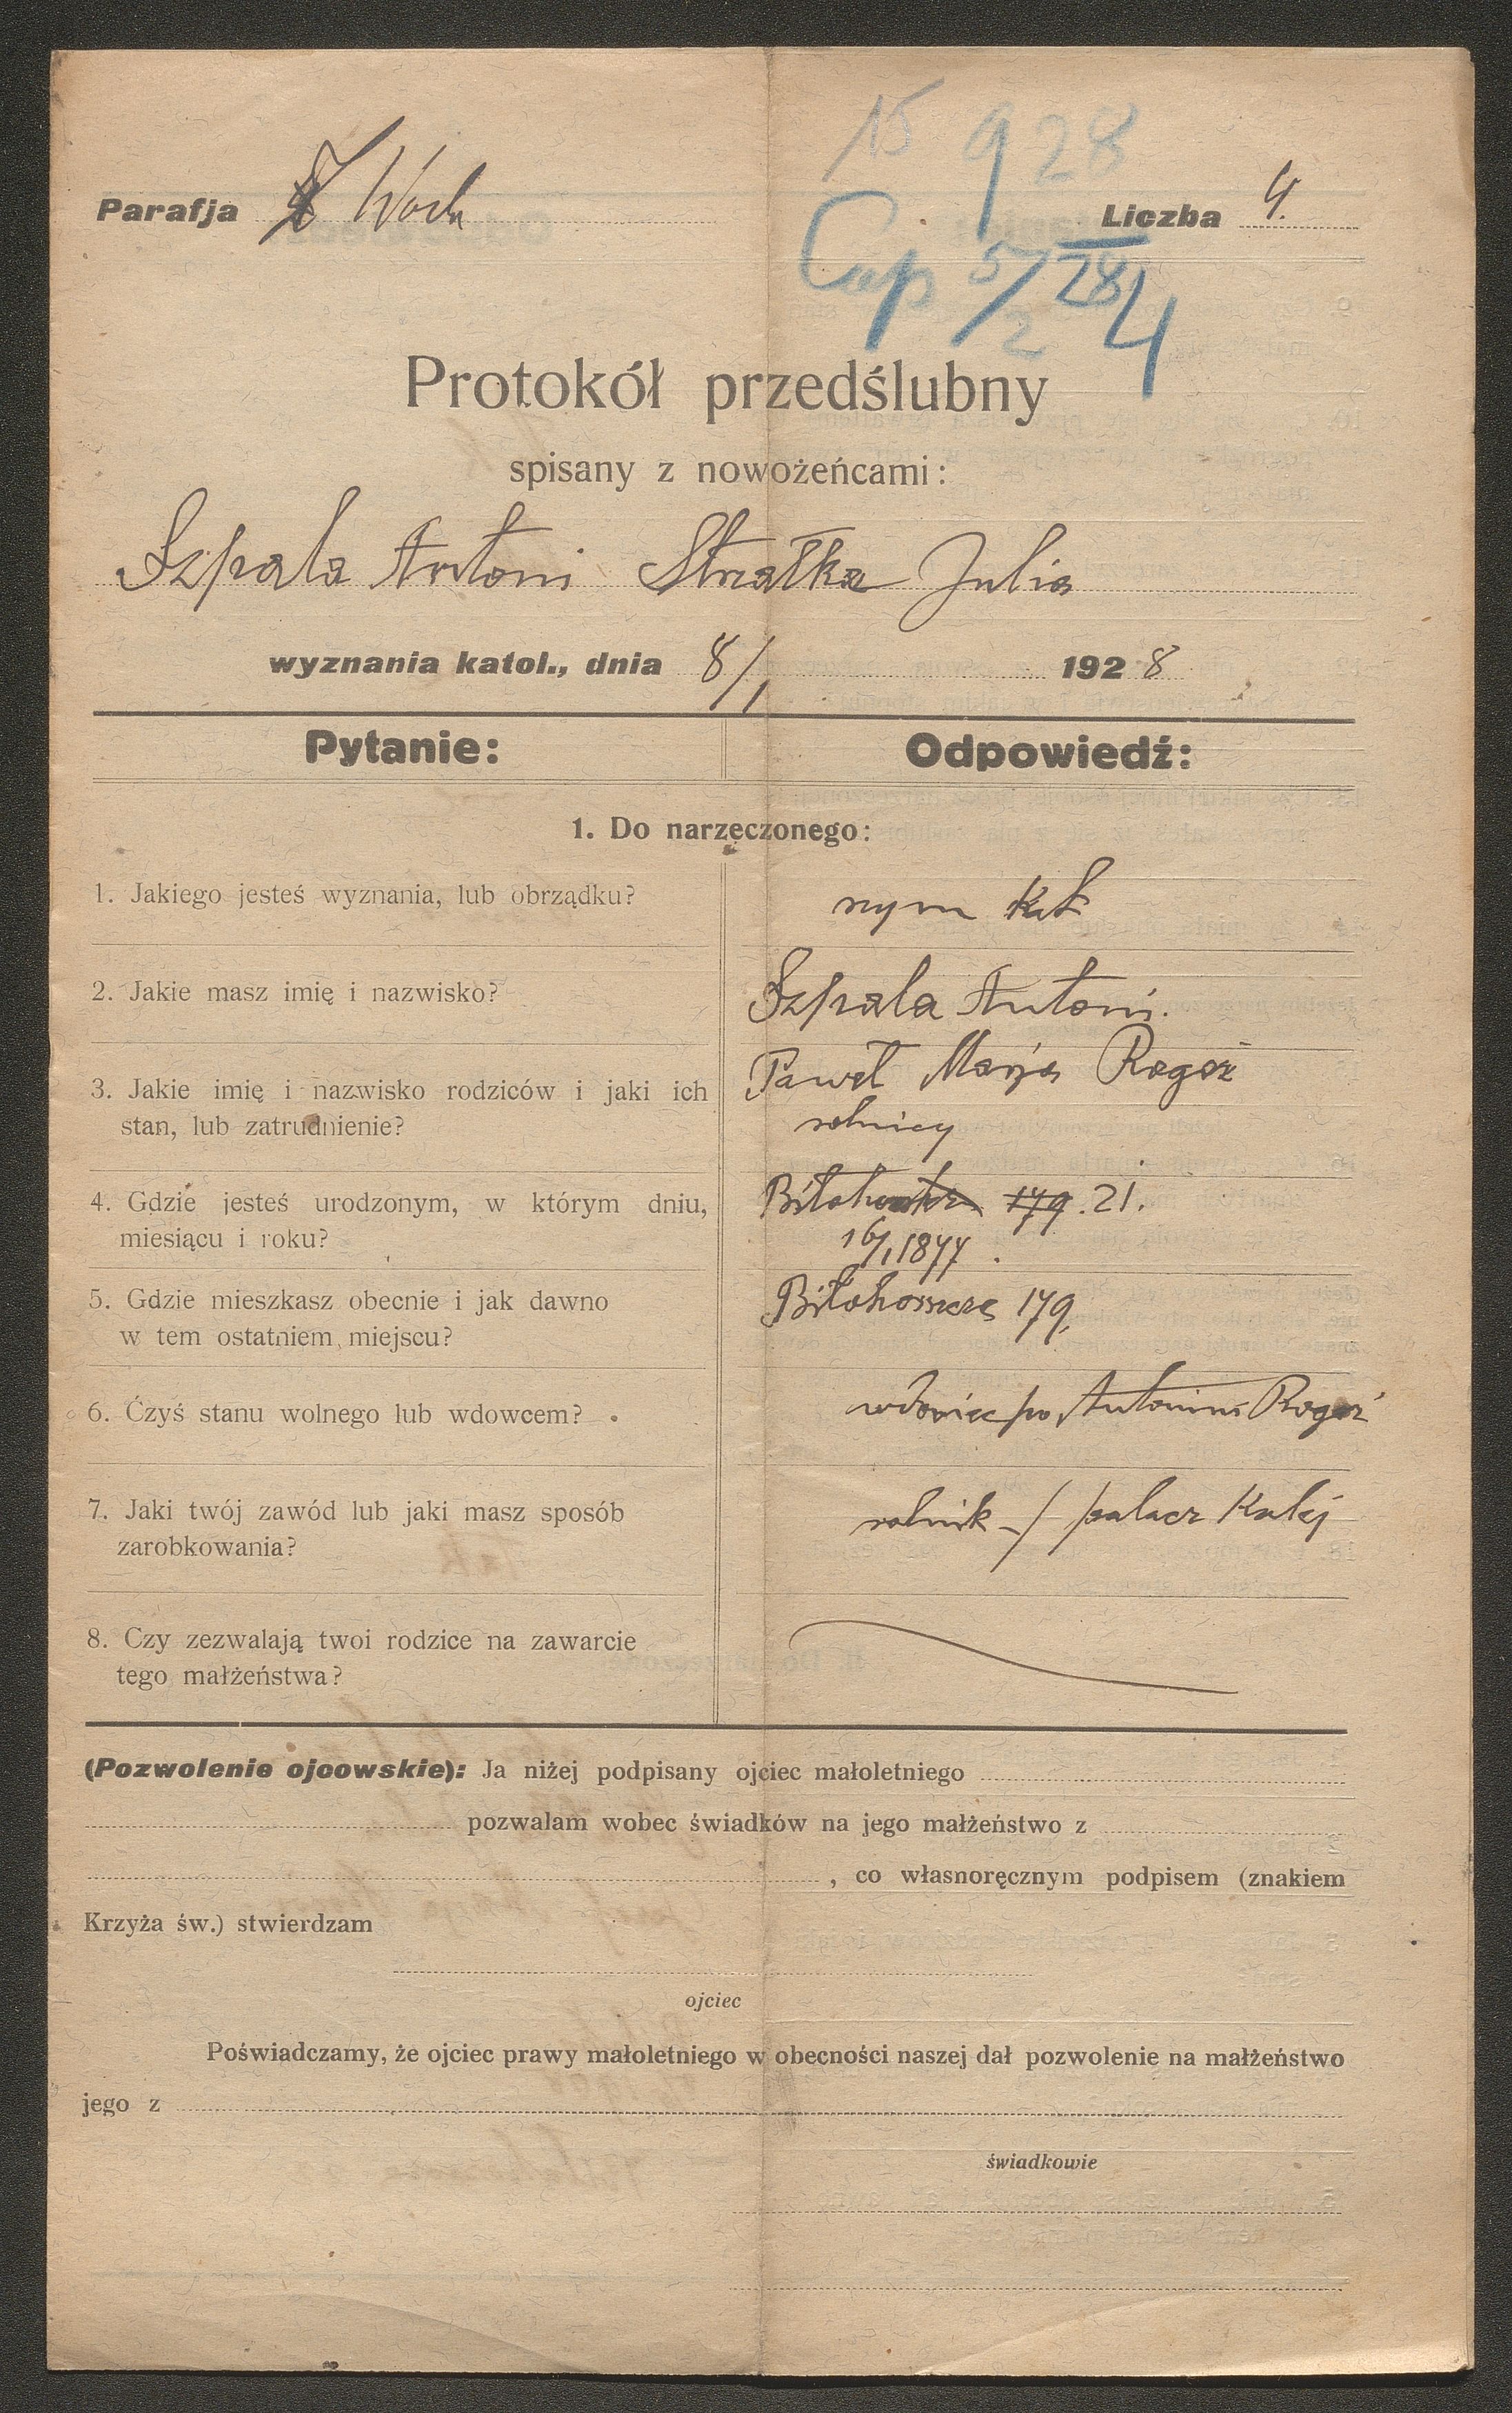 15 928
Parafja Liczba 4.
Cup 5/2 28/4
Protokół przedślubny
spisany z nowożeńcami:
Szpala Antoni Strzałka Julia
wyznania katol., dnia 8/1 1928
Pytanie: Odpowiedź:
1. Do narzeczonego:
1. Jakiego jesteś wyznania, lub obrządku? rzym kat
2. Jakie masz imię i nazwisko? Szpala Antoni.
3. Jakie imię i nazwisko rodziców i jaki ich Paweł Marja Rogoż
stan, lub zatrudnienie? rolnicy
4. Gdzie jesteś urodzonym, w którym dniu, 179. 21.
miesiącu i roku? 16/1 1877.
5. Gdzie mieszkasz obecnie i jak dawno Biłohorszcze 179.
w tem ostatniem miejscu?
6. Czyś stanu wolnego lub wdowcem? wdowiec po Antonini Rogoż
7. Jaki twój zawód lub jaki masz sposób rolnik -/ palacz Kolej
zarobkowania?
8. Czy zezwalają twoi rodzice na zawarcie
tego małżeństwa?
(Pozwolenie ojcowskie): Ja niżej podpisany ojciec małoletniego
pozwalam wobec świadków na jego małżeństwo z
, co własnoręcznym podpisem (znakiem
Krzyża św.) stwierdzam
ojciec
Poświadczamy, że ojciec prawy małoletniego w obecności naszej dał pozwolenie na małżeństwo
jego z
świadkowie